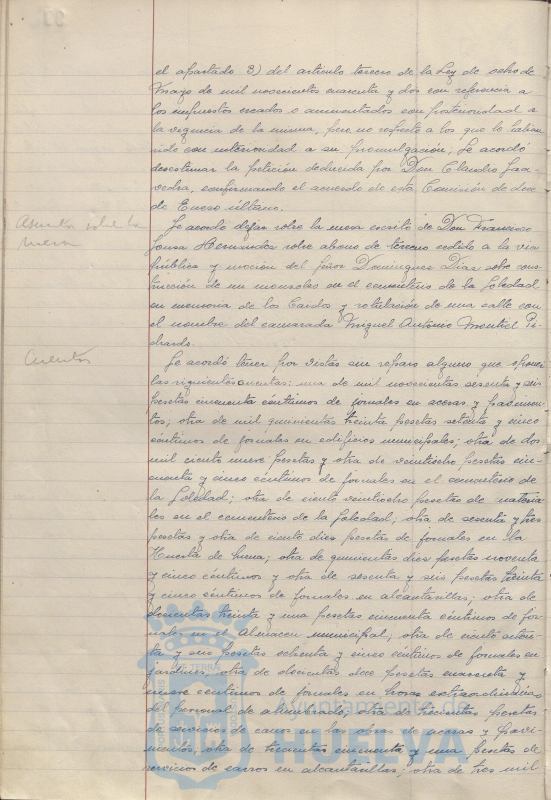 el apartado 3) del articulo tercero de la Ley de ocho de
Mayo de mil novecientos cuarenta y dos con referencia a
los impuestos creados o aumentados con posterioridad a
la vigencia de la misma, pero no respecto a los que lo habian
sido con anterioridad a su promulgación, Se acordó
desestimar la petición deducida por Don Claudio Saa-
vedra, confirmando el acuerdo de esta Comisión de doce
de Enero último.
Asuntos sobre la
mesa
Se acordó dejar sobre la mesa escrito de Don Francisco
Sousa Hernandez sobre abono de terreno cedido a la via
pública y moción del Señor Dominguez Diaz sobre cons-
trucción de un mausoleo en el cementerio de la Soledad
en memoria de los Caidos y rotulación de una calle con
el nombre del camarada Miguel Antonio Montiel Pi-
chardo.
Cuentas
Se acordó tener por vistas sin reparo alguno que oponer
las siguientes cuentas: una de mil novecientas sesenta y seis
pesetas cincuenta céntimos de jornales en aceras y pavimen-
tos; otra de mil quinientas treinta pesetas setenta y cinco
céntimos de jornales en edificios municipales; otra de dos
mil ciento nueve pesetas y otra de veintiocho pesetas cin-
cuenta y cinco céntimos de jornales en el cementerio de
la Soledad; otra de ciento veintiocho pesetas de materia-
les en el cementerio de la Soledad; otra de sesenta y tres
pesetas y otra de ciento diez pesetas de jornales en la
Huerta de Mena; otra de quinientas diez pesetas noventa
y cinco céntimos y otra de sesenta y seis pesetas treinta
y cinco céntimos de jornales en alcantarillas; otra de
doscientas treinta y una pesetas cincuenta céntimos de jor-
nales en el Almacen municipal, otra de ciento seten-
ta y seis pesetas ochenta y cinco céntimos de jornales en
jardines, otra de doscientas doce pesetas cuarenta y
nueve céntimos de jornales en horas extraordinarias
del personal de alumbrado; otra de trescientas pesetas
de servicios de carros en las obras de aceras y pavi-
mentos; otra de trescientas cincuenta y una pesetas de
servicios de carros en alcantarillas; otra de tres mil
Ayuntamiento de
HUELVA